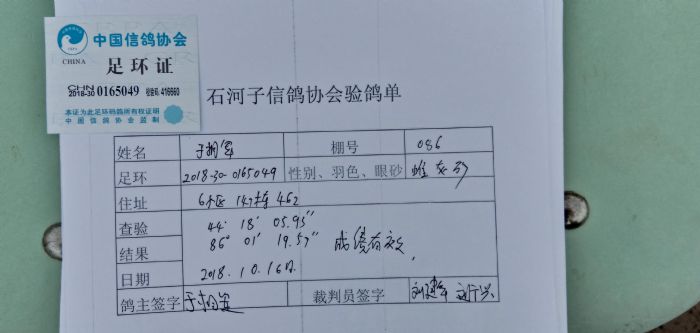 中国信鸽协会
CHINA
足环证
CHN
2018-30 0165049 检验码 416660
本证为此足环码鸽所有权证明
中国信鸽协会监制
石河子信鸽协会验鸽单
姓名 棚号 086
足环 2018-30-0165049 性别、羽色、眼砂 雌 灰 砂
住址 6小区 147栋 462
查验 44° 18′ 05.95″
结果 86° 01′ 19.57″ 成绩有效.
日期 2018.10.16日.
鸽主签字 裁判员签字